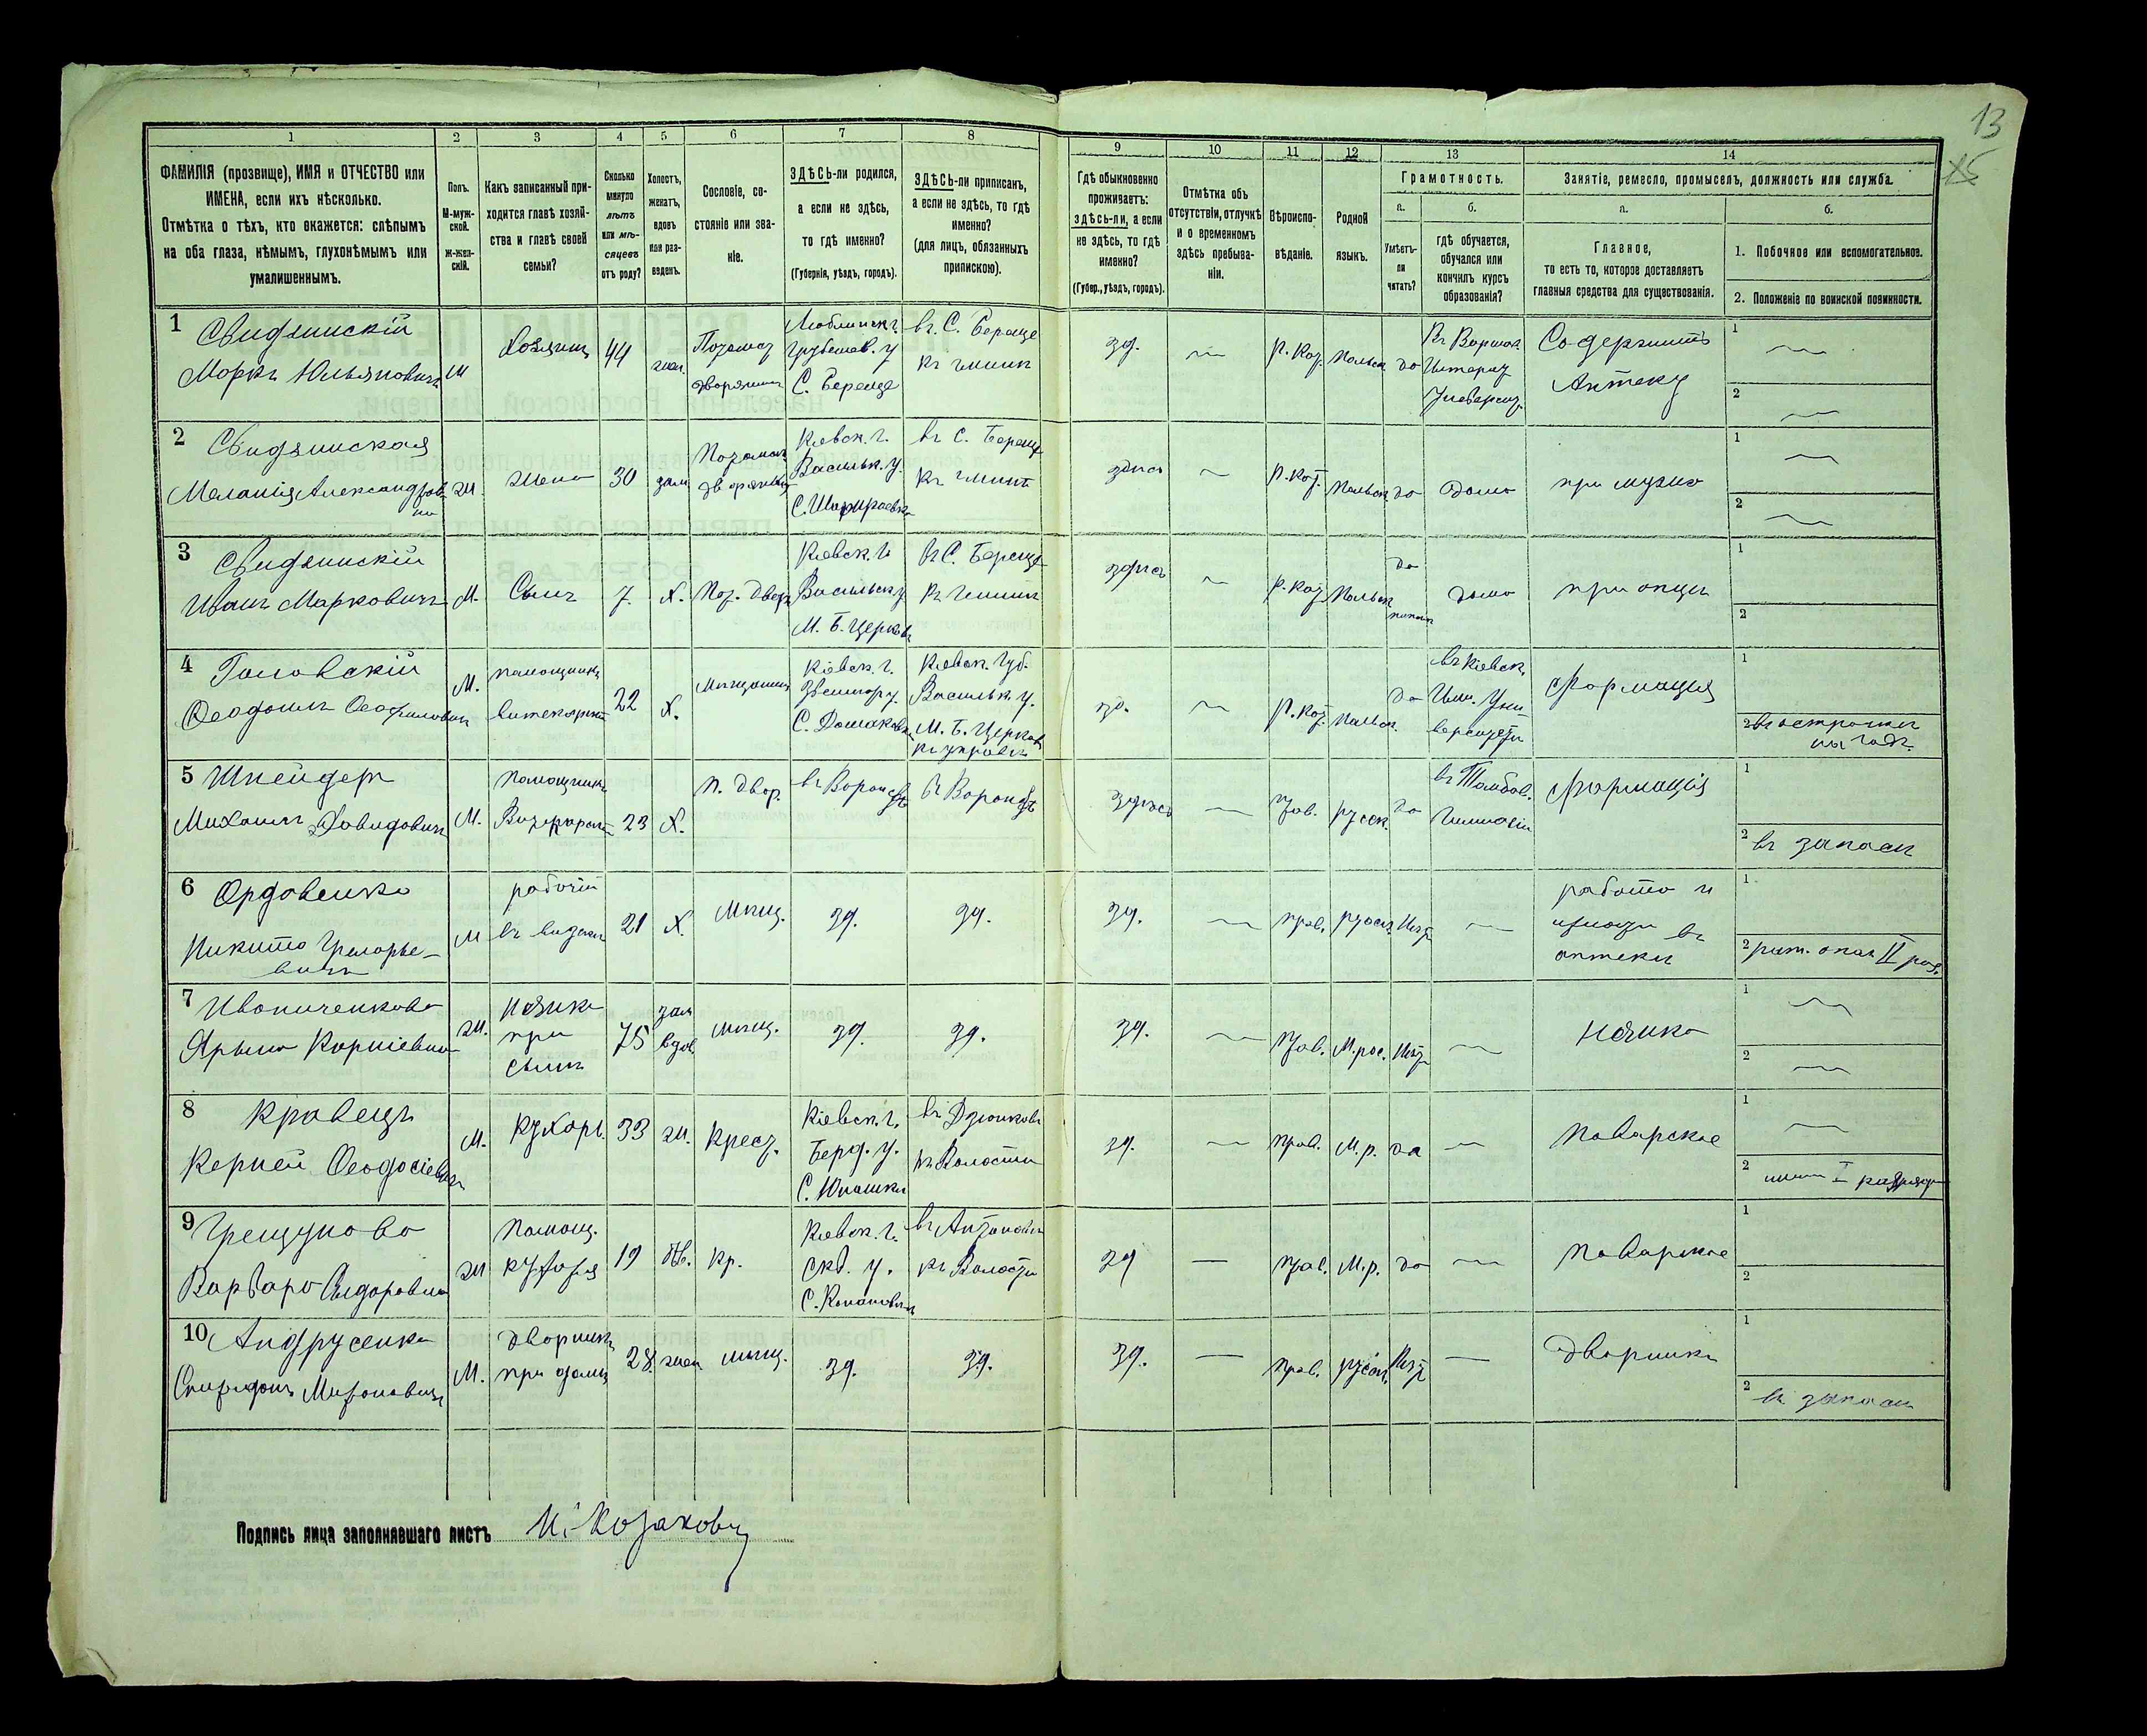 13
15
1 2 3 4 5 6 7 8 9 10 11 12 13 14
ФАМИЛІЯ (прозвище), ИМЯ и ОТЧЕСТВО или
ИМЕНА, если ихъ нѣсколько.
Отмѣтка о тѣхъ, кто окажется: слѣпымъ
на оба глаза, нѣмымъ, глухонѣмымъ или
умалишеннымъ.
Полъ.
М-муж-
ской.
Ж-жен-
скій.
Какъ записанный при-
ходится главѣ хозяй-
ства и главѣ своей
семьи?
Сколько
минуло
лѣтъ
или мѣ-
сяцевъ
отъ роду?
Холостъ,
женатъ,
вдовъ
или раз-
веденъ.
Сословіе, со-
стояніе или зва-
ніе.
ЗДѢСЬ-ли родился,
а если не здѣсь,
то гдѣ именно?
(Губернія, уѣздъ, городъ).
ЗДѢСЬ-ли приписанъ,
а если не здѣсь, то гдѣ
именно?
(для лицъ, обязанныхъ
припискою).
Гдѣ обыкновенно
проживаетъ:
здѣсь-ли, а если
не здѣсь, то гдѣ
именно?
(Губер., уѣздъ, городъ).
Отмѣтка объ
отсутствіи, отлучкѣ
и о временномъ
здѣсь пребыва-
ніи.
Вѣроиспо-
вѣданіе.
Родной
языкъ.
Грамотность.
а.
Умѣетъ-
ли
читать?
б.
гдѣ обучается,
обучался или
кончилъ курсъ
образованія?
Занятіе, ремесло, промыселъ, должность или служба.
а.
Главное,
то есть то, которое доставляетъ
главныя средства для существованія.
б.
1. Побочное или вспомогательное.
2. Положеніе по воинской повинности.
1 Свидзинскій
Маркъ Юльяновичъ
М
Хозяинъ
44
жен.
Потомст
дворянинъ
Люблинск. г.
Грубешов. у
С. Бересце
въ С. Бересце
къ гминѣ
зд.
р. кат.
польск
да
Въ Варшав.
Императ
Университ.
Содержитъ
Аптеку
1
2
2 Свидзинская
Меланія Александров
на
Ж.
жена
30
зам
Потомст
дворянка
Кіевск. г.
Васильк. у.
въ С. Бересце
къ гминѣ
здѣсь
р. кат.
польск
да
дома
при мужѣ
1
2
3 Свидзинскій
Иванъ Марковичъ
М.
Сынъ
7.
Х.
Пот. двор
Кіевск. г.
Васильк у.
М. Б. Церковь
въ С. Бересце
къ гминѣ
здѣсь
р. кат
польск
да
дома
при отцѣ
1
2
4 Головскій
М.
помощникъ
22
Х.
мѣщанинъ
Кіевск. г.
Звенигор у.
Кіевск. Губ.
Васильк у.
М. Б. Церковь
къ управѣ
зд.
р. кат.
польск.
да
въ Кіевск.
Имп. Уни-
верситетѣ
фармація
1
2 въ отсрочкѣ
на годъ.
5 Шнейдеръ
Михаилъ Давидовичъ
М.
помощникъ
23
Х.
п. двор.
въ Воронежѣ
въ Воронежѣ
здѣсь
прав.
русск.
да
въ Тамбов.
Гимназіи
фармація
1
2 въ запасѣ
6 Ордовенко
Никита Григорье-
вичъ
М
рабочій
21
Х.
мѣщ.
зд.
зд.
зд.
прав.
русск.
Нѣт
работа и
аптекѣ
1
2 рат. опол. II раз.
7 Иваниченкова
Арына Корніевна
Ж.
нянька
при
сынѣ
75
вдов
мѣщ.
зд.
зд.
зд.
прав.
М. рос.
Нѣт
нянька
1
2
8 Кравецъ
Керней Феодосіевичъ
М.
кухарь.
33
ж.
крест.
Кіевск. г.
Берд. у.
С. Юнашки
въ Дзюньковѣ
къ Волости
зд.
прав.
М. р.
да
поварское
1
2 I разряда
9 Грещунова
Варвара Сидоровна
Ж
помощ.
кухаря
19
дѣв.
кр.
Кіевск. г.
Скв. у.
къ Волости
зд
прав.
М. р.
да
поварское
1
2
10 Андрусенко
Спиридонъ Мироновичъ
М.
дворникъ
при домѣ
28.
жен
мѣщ.
зд.
зд.
зд.
прав.
русск.
Нѣт
Дворникъ
1
2 въ запасѣ
Подпись лица заполнявшаго листъ И. Козаковъ